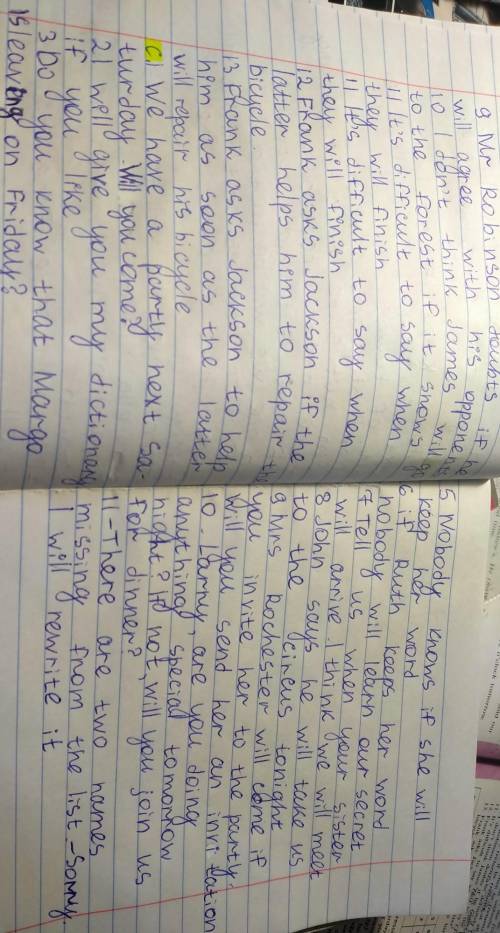 9 Mr Robinson doubts if he
will agree with his opponent
10 I don't think James will go
to the forest if it snows
11 It's difficult to say when
they will finish
11 It's difficult to say when
they will finish
12 Frank asks Jackson if the
latter helps him to repair the
bicycle.
13 Frank asks Jackson to help
him as soon as the latter
will repair his bicycle
C) 1 We have a party next Sa-
turday. Will you come?
2 I will give you my dictionery
if you like
3 Do you know that Margo
is leaving on Friday?
5 Nobody knows if she will
keep her word
6 if Ruth keeps her word
nobody will learn our secret
7 Tell us when your sister
will arrive. I think we will meet
8 John says he will take us
to the circus tonight
9 Mrs Rochester will come if
you invite her to the party.
Will you send her an invitation
10 - Larny, are you doing
anything special tomorrow
night? If not, will you join us
for dinner?
11 - There are two names
missing from the list - Sorry.
I will rewrite it